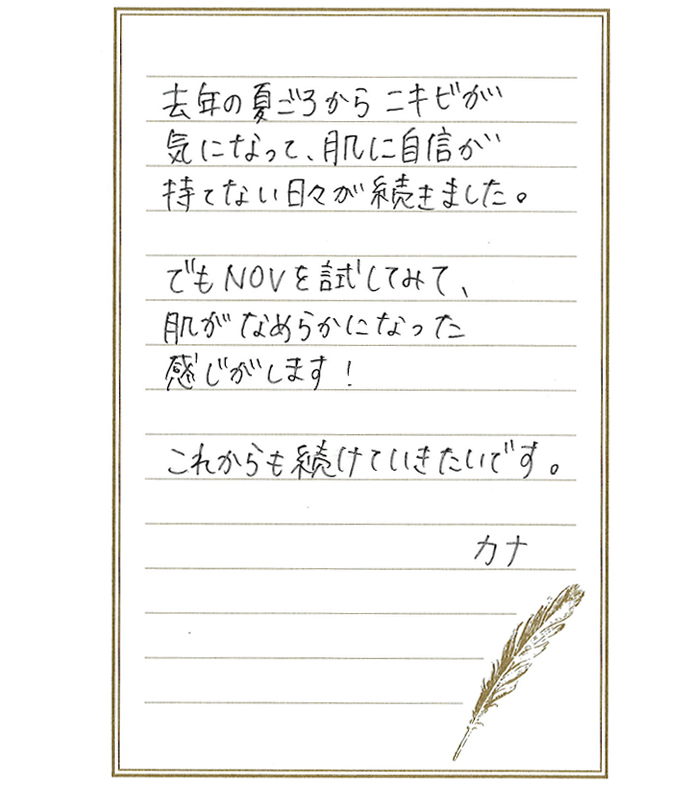 去年の夏ごろから ニキビが
気になって、肌に自信が
持てない日々が続きました。
でもNOVを試してみて、
肌がなめらかになった
感じがします!
これからも続けていきたいです。
カナ